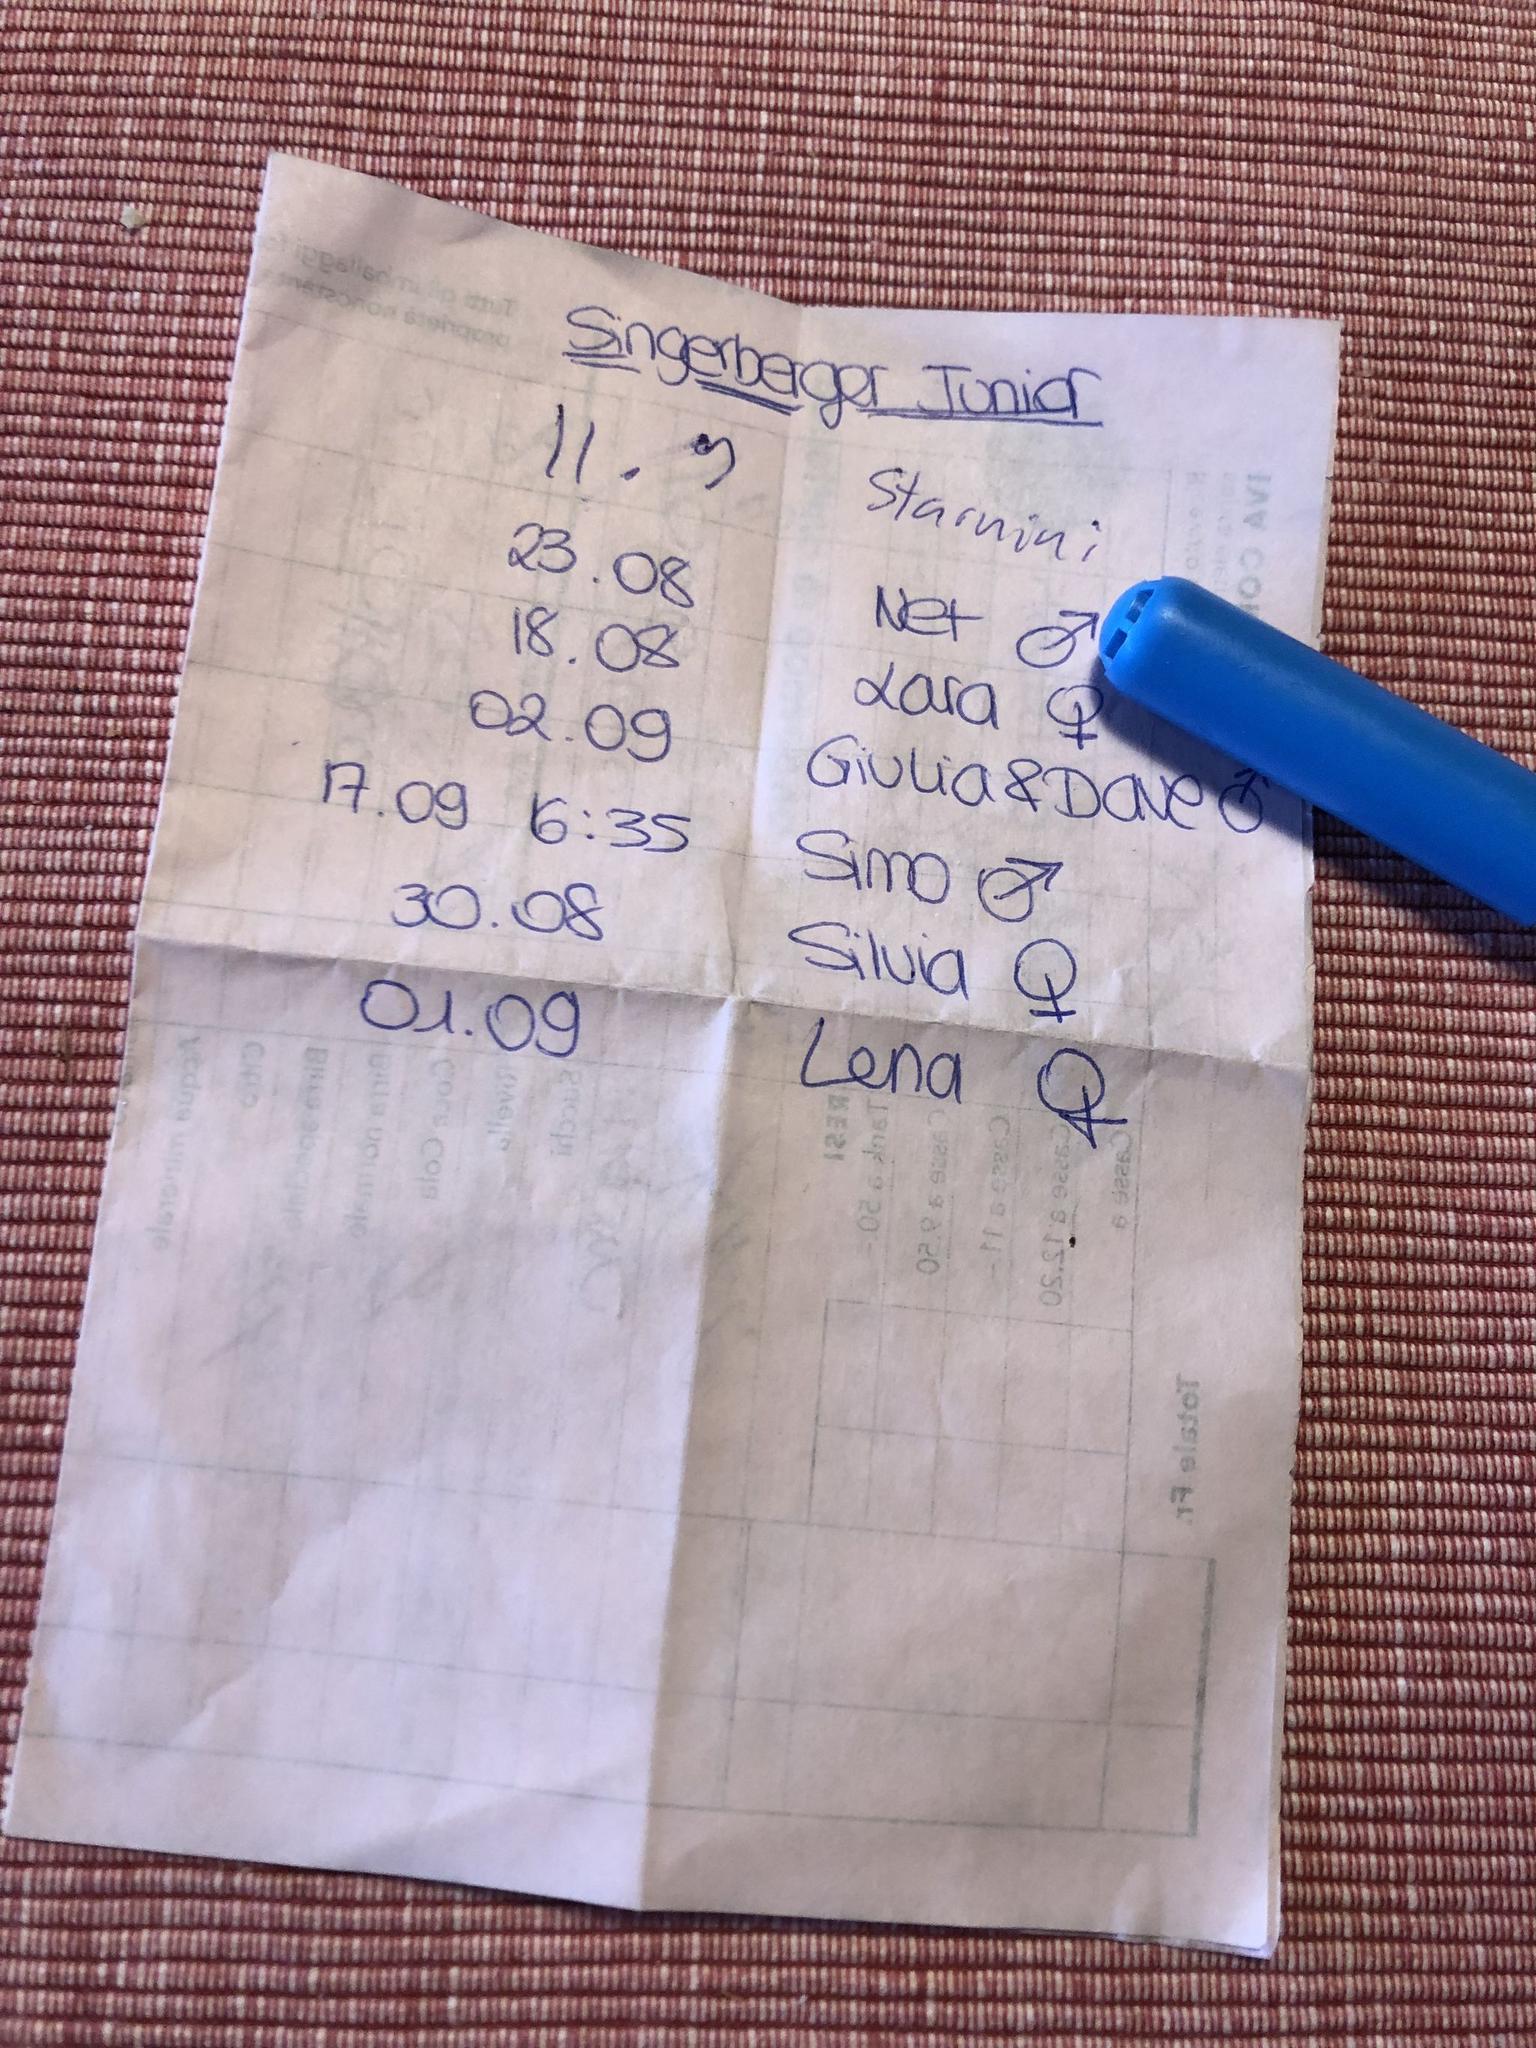 Singerberger Junior
11. 9 Starnini
23.08 Net ♂
18.08 Lara ♀
02.09 Giulia & Dave ♂
17.09 6:35 Simo ♂
30.08 Silvia ♀
01.09 Lena ♀
Tutti gli imballaggi
proprietà nonostante
IVA CO
Acqua minerale
Birra speciale
Birra normale
Coca Cola
Rivella
Succhi
RESI
Tank a 50.-
Casse a 9.50
Casse a 11.-
Casse a 12.20
Casse a
Totale Fr.